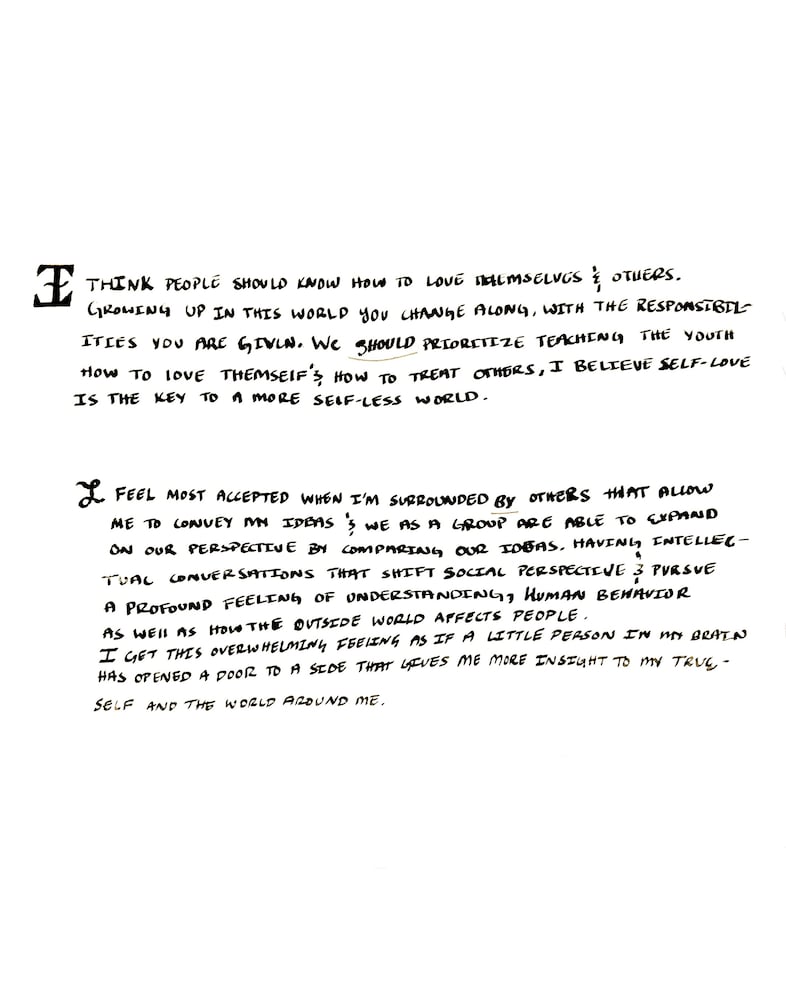 I THINK PEOPLE SHOULD KNOW HOW TO LOVE THEMSELVES & OTHERS.
GROWING UP IN THIS WORLD YOU CHANGE ALONG, WITH THE RESPONSIBIL-
ITIES YOU ARE GIVEN. WE SHOULD PRIORITIZE TEACHING THE YOUTH
HOW TO LOVE THEMSELF & HOW TO TREAT OTHERS, I BELIEVE SELF-LOVE
IS THE KEY TO A MORE SELF-LESS WORLD.
I FEEL MOST ACCEPTED WHEN I'M SURROUNDED BY OTHERS THAT ALLOW
ME TO CONVEY MY IDEAS & WE AS A GROUP ARE ABLE TO EXPAND
ON OUR PERSPECTIVE BY COMPARING OUR IDEAS. HAVING INTELLEC-
TUAL CONVERSATIONS THAT SHIFT SOCIAL PERSPECTIVE & PURSUE
A PROFOUND FEELING OF UNDERSTANDING, HUMAN BEHAVIOR
AS WELL AS HOW THE OUTSIDE WORLD AFFECTS PEOPLE.
I GET THIS OVERWHELMING FEELING AS IF A LITTLE PERSON IN MY BRAIN
HAS OPENED A DOOR TO A SIDE THAT GIVES ME MORE INSIGHT TO MY TRUE-
SELF AND THE WORLD AROUND ME.